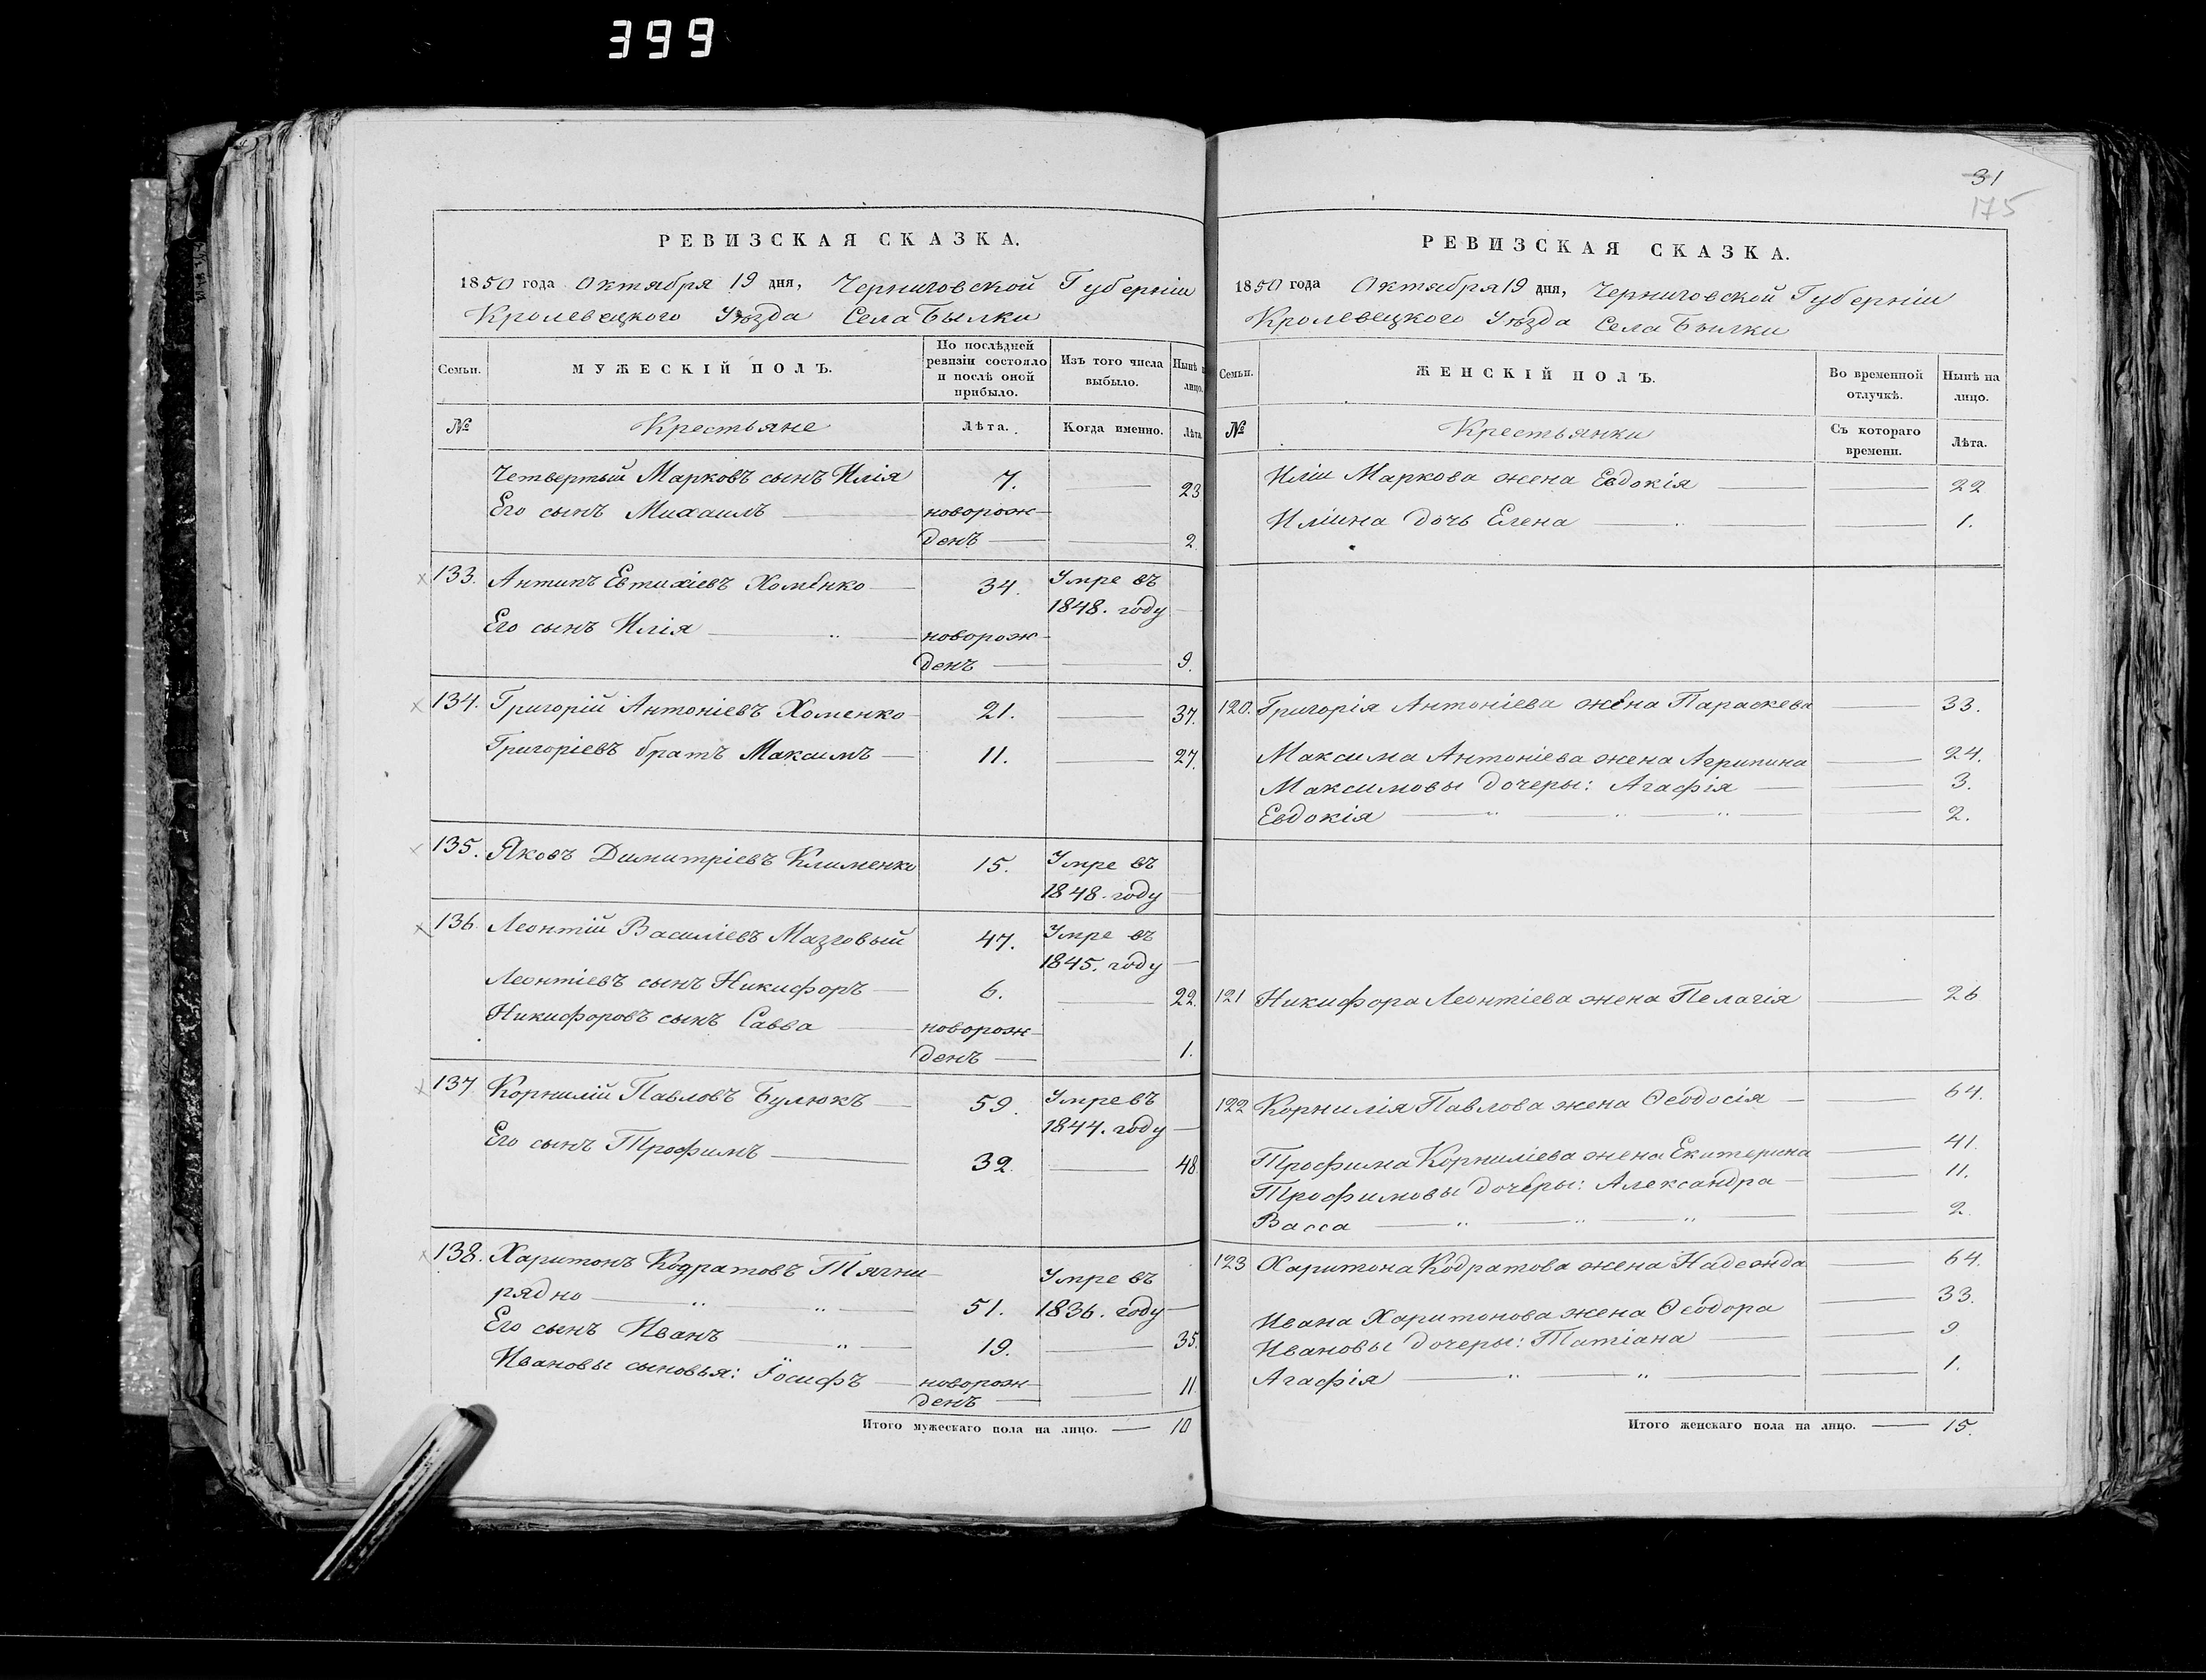 399
РЕВИЗСКАЯ СКАЗКА.
1850 года Октября 19 дня, Черниговской Губерніи
Кролевецкого Уѣзда Села Былки
Семьи.
МУЖЕСКІЙ ПОЛЪ.
По послѣдней ревизіи состояло и послѣ оной прибыло.
Изъ того числа выбыло.
Нынѣ на лицо.
№
Крестьяне
Лѣта.
Когда именно.
Лѣта
Четвертый Марковъ сынъ Илія 7. 23
Его сынъ Михаилъ новорож-
денъ 2
133. Антипъ Евтихіевъ Хоменко 34. Умре въ
1848. году
Его сынъ Илія новорож-
денъ 9.
134. Григорій Антоніевъ Хоменко 21. 37.
Григоріевъ братъ Максимъ 11. 27.
135. Яковъ Димитріевъ Клименко 15. Умре въ
1848. году
136. Леонтій Василіевъ Мазговый 47. Умре въ
1845. году
Леонтіевъ сынъ Никифоръ 6. 22.
Никифоровъ сынъ Савва новорож-
денъ 1.
137 Корнилій Павловъ Булюкъ 59. Умре въ
1844. году
Его сынъ Трофимъ 32. 48
138. Харитонъ Кодратовъ Тягни-
рядно 51. Умре въ
1836. году
Его сынъ Иванъ 19. 35.
Ивановы сыновья: Іосифъ новорож-
денъ 11
Итого мужескаго пола на лицо. 10
31
175
РЕВИЗСКАЯ СКАЗКА.
1850 года Октября 19 дня, Черниговской Губерніи
Кролевецкого Уѣзда Села Былки
Семьи.
ЖЕНСКІЙ ПОЛЪ.
Во временной отлучкѣ.
Нынѣ на лицо.
№
Крестьянки
Съ котораго времени.
Лѣта.
Иліи Маркова жена Евдокія 22
Иліина дочь Елена 1.
120. Григорія Антоніева жена Параскева 33.
Максима Антоніева жена Агрипина 24.
Максимовы дочеры: Агафія 3.
Евдокія 2.
121 Никифора Леонтіева жена Пелагія 26
122 Корнилія Павлова жена Ѳеодосія 64.
Трофима Корниліева жена Екатерина 41.
Трофимовы дочеры: Александра 11.
Васса 2.
123 Харитона Кодратова жена Надежда 64.
Ивана Харитонова жена Ѳеодора 33.
Ивановы дочеры: Татіана 9
Агафія 1.
Итого женскаго пола на лицо. 15.